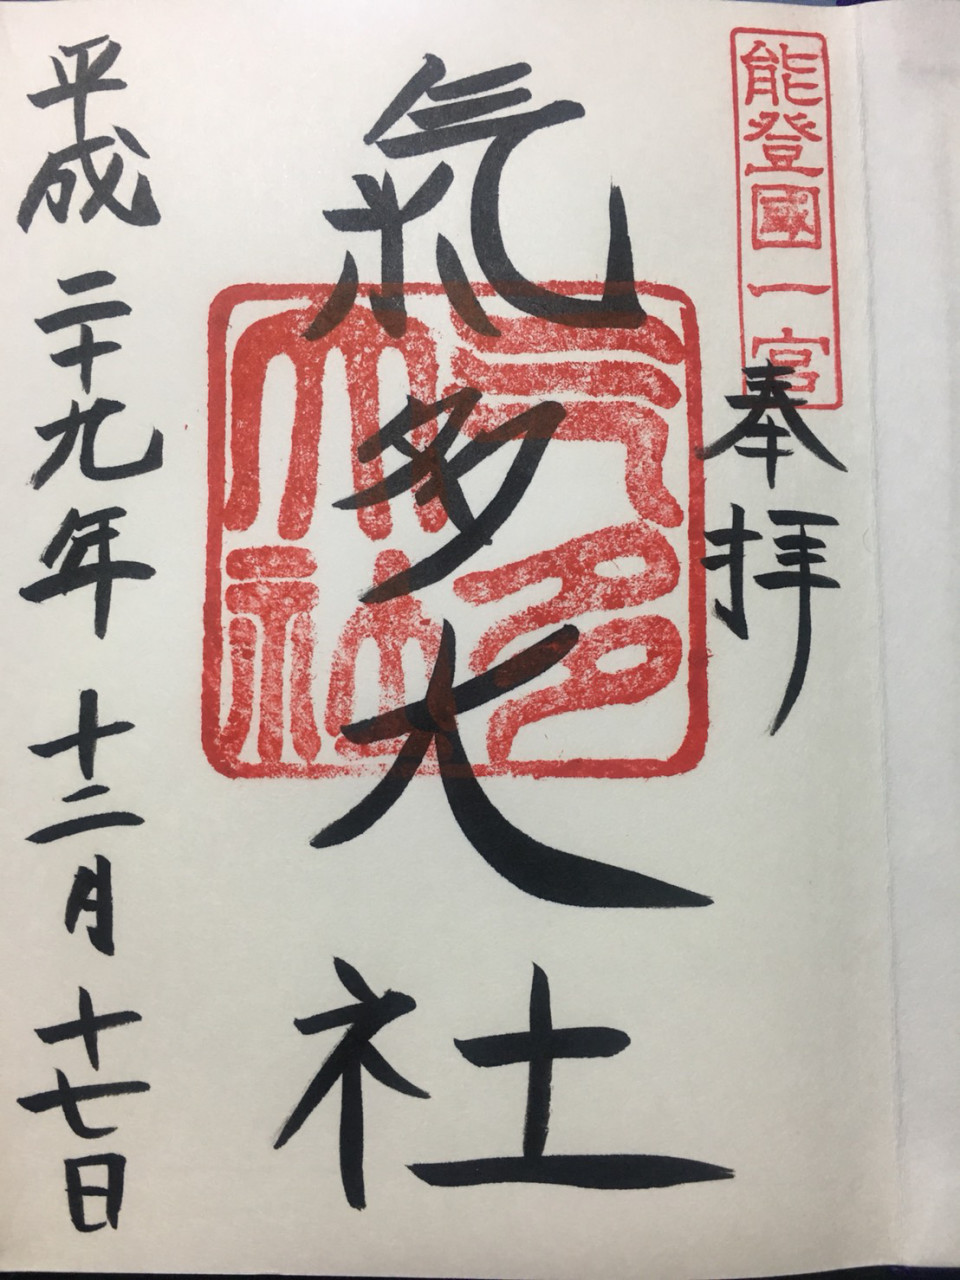 能登國一宮
奉拝
氣多大社
氣多大社
平成二十九年十二月十七日